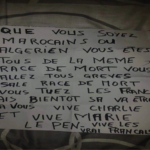 QUE VOUS SOYEZ
MAROCAINS OU
ALGERIEN VOUS ETES
TOUS DE LA MEME
RACE DE MORT VOUS
ALLEZ TOUS CREVES
SALE RACE DE MORT
VOUS TUEZ LES FRANC
AIS BIENTOT SA VA ETRE
VOUS VIVE CHARLIE
ET VIVE MARIE
LE PEN VIVE LES
VRAI FRANCAIS